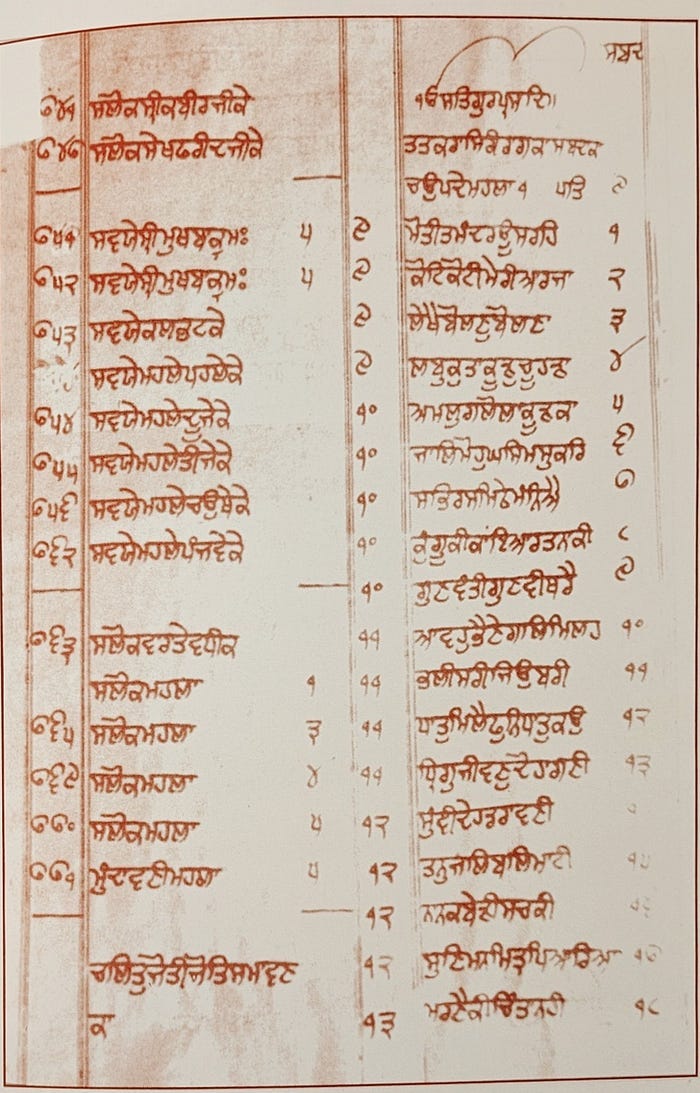 ੭੪੧ ਸਲੋਕਸ੍ਰੀਕਬੀਰਜੀਕੇ
੭੪੭ ਸਲੋਕਸੇਖਫਰੀਦਜੀਕੇ
੭੫੧ ਸਵਯੇਸ੍ਰੀਮੁਖਬਾਕ੍ਯਮਃ ੫
੭੫੨ ਸਵਯੇਸ੍ਰੀਮੁਖਬਾਕ੍ਯਮਃ ੫
੭੫੩ ਸਵਯੇਕਲਭਟਕੇ
ਸਵਯੇਮਹਲੇਪਹਲੇਕੇ
੭੫੪ ਸਵਯੇਮਹਲੇਦੂਜੇਕੇ
੭੫੫ ਸਵਯੇਮਹਲੇਤੀਜੇਕੇ
੭੫੬ ਸਵਯੇਮਹਲੇਚਉਥੇਕੇ
੭੬੨ ਸਵਯੇਮਹਲੇਪੰਜਵੇਕੇ
੭੬੩ ਸਲੋਕਵਾਰਤੇਵਧੀਕ
ਸਲੋਕਮਹਲਾ ੧
੭੬੫ ਸਲੋਕਮਹਲਾ ੩
੭੬੯ ਸਲੋਕਮਹਲਾ ੪
੭੭੦ ਸਲੋਕਮਹਲਾ ੫
੭੭੧ ਮੁੰਦਾਵਣੀਮਹਲਾ ੫
ਚਲਿਤੁਜੋਤੀਜੋਤਿਸਮਾਵਣ
ਕਾ
ਸਬਦ
ੴਸਤਿਗੁਰਪ੍ਰਸਾਦਿ॥
ਤਤਕਰਾਸਿਰੀਰਾਗਕਾਸਬਦਕਾ
ਚਉਪਦੇਮਹਲਾ ੧ ਪਤਿ ੯
੯ ਮੋਤੀਤਮੰਦਰਊਸਰਹਿ ੧
੯ ਕੋਟਿਕੋਟੀਮੇਰੀਆਰਜਾ ੨
੯ ਲੇਖੈਬੋਲਣੁਬੋਲਣਾ ੩
੯ ਲਬੁਕੁਤਾਕੂੜੁਚੂਹੜਾ ੪
੧੦ ਅਮਲੁਗਲੋਲਾਕੂੜਕਾ ੫
੧੦ ਜਾਲਿਮੋਹੁਘਸਿਮਸੁਕਰਿ ੬
੧੦ ਸਭਿਰਸਮਿਠੇਮੰਨਿਐ ੭
੧੦ ਕੁੰਗੂਕੀਕਾਂਇਆਰਤਨਕੀ ੮
੧੦ ਗੁਣਵੰਤੀਗੁਣਵੀਥਰੈ ੯
੧੧ ਆਵਹੁਭੈਣੇਗਲਿਮਿਲਹ ੧੦
੧੧ ਭਲੀਸਰੀਜਿਉਬਰੀ ੧੧
੧੧ ਧਾਤੁਮਿਲੈਫੁਨਿਧਾਤੁਕਉ ੧੨
੧੧ ਧ੍ਰਿਗੁਜੀਵਣੁਦੋਹਾਗਣੀ ੧੩
੧੨ ਸੁੰਞੀਦੇਹਡਰਾਵਣੀ
੧੨ ਤਨੁਜਾਲਿਬਾਲਿਮਾਟੀ ੧੫
੧੨ ਨਾਨਕਬੇੜੀਸਚਕੀ ੧੬
੧੨ ਸੁਣਿਮਨਮਿਤ੍ਰਪਿਆਰਿਆ ੧੭
੧੩ ਮਰਣੈਕੀਚਿੰਤਾਨਹੀ ੧੮